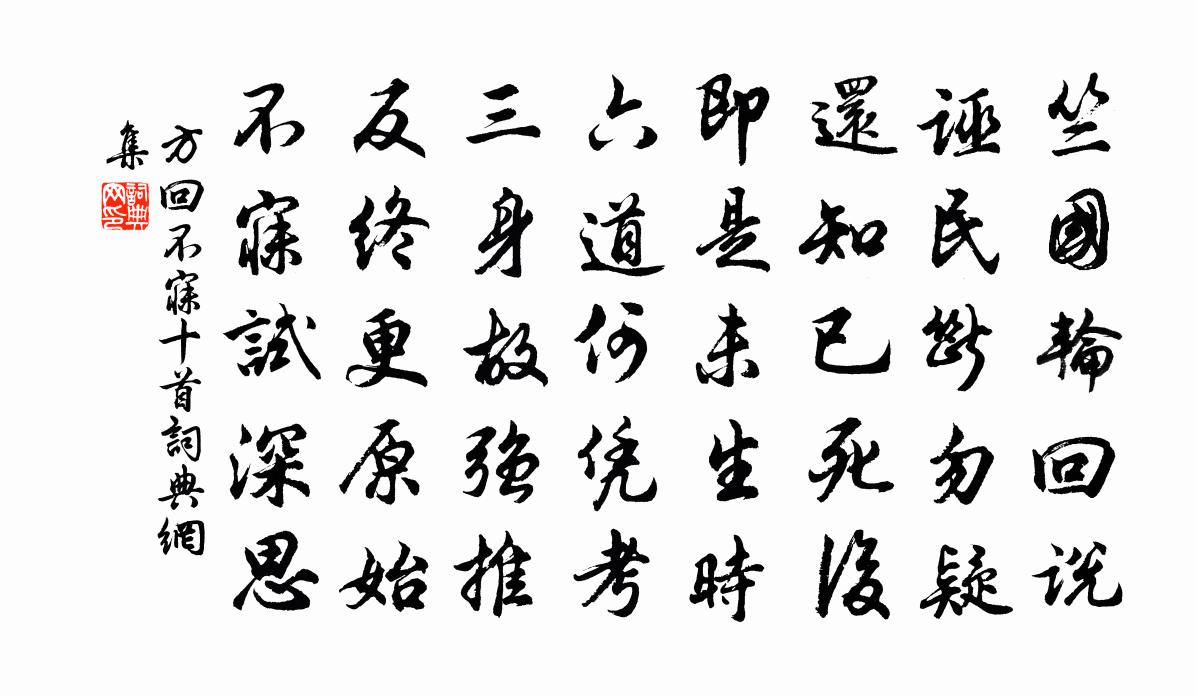 竺國輪回說
誣民斷勿疑
還知已死後
即是未生時
六道何凭考
三身故強推
反終更原始
不寐試深思
方回不寐十首詞典網
集
詞典網印